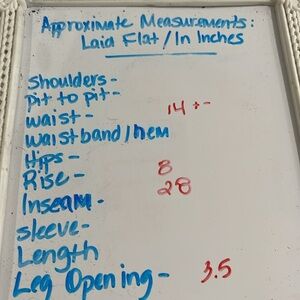 Approximate Measurements:
Laid Flat / In Inches
Shoulders -
pit to pit -
waist - 14 + -
waistband / hem
Hips -
Rise - 8
Inseam - 28
sleeve -
Length
Leg Opening - 3.5